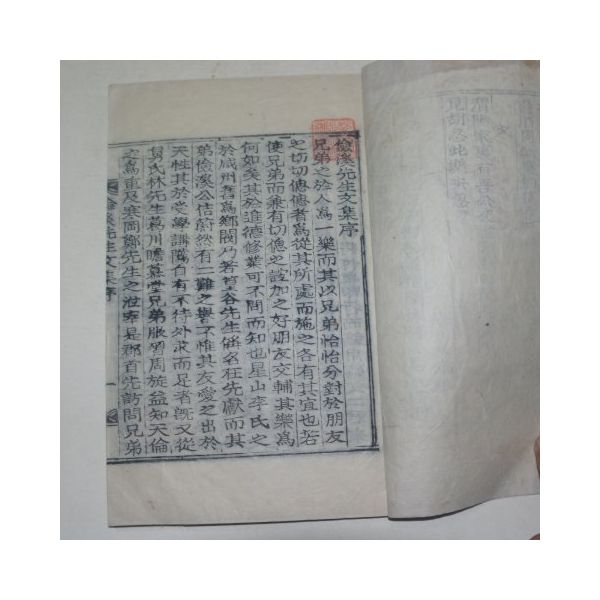 儉溪先生文集序
兄弟之於人為一樂而其以兄弟怡怡分對於朋友
之切切偲偲者為從其所處而施之各有其宜也若
使兄弟而兼有切偲之誼加之好朋友交輔其樂為
何如矣其於進德修業可不問而知也星山李氏之
於咸州舊為鄉閥乃若篁谷先生稱名往先獻而其
弟儉溪公佶蔚然有二難之譽不惟其友愛之出於
天性其於受學講隲自有不待外求而足者旣又從
舅氏林先生葛川瞻慕堂兄弟服習周旋益知天倫
之為重及寒岡鄭先生之涖宰是郡首先訪問兄弟
儉溪先生文集序
一